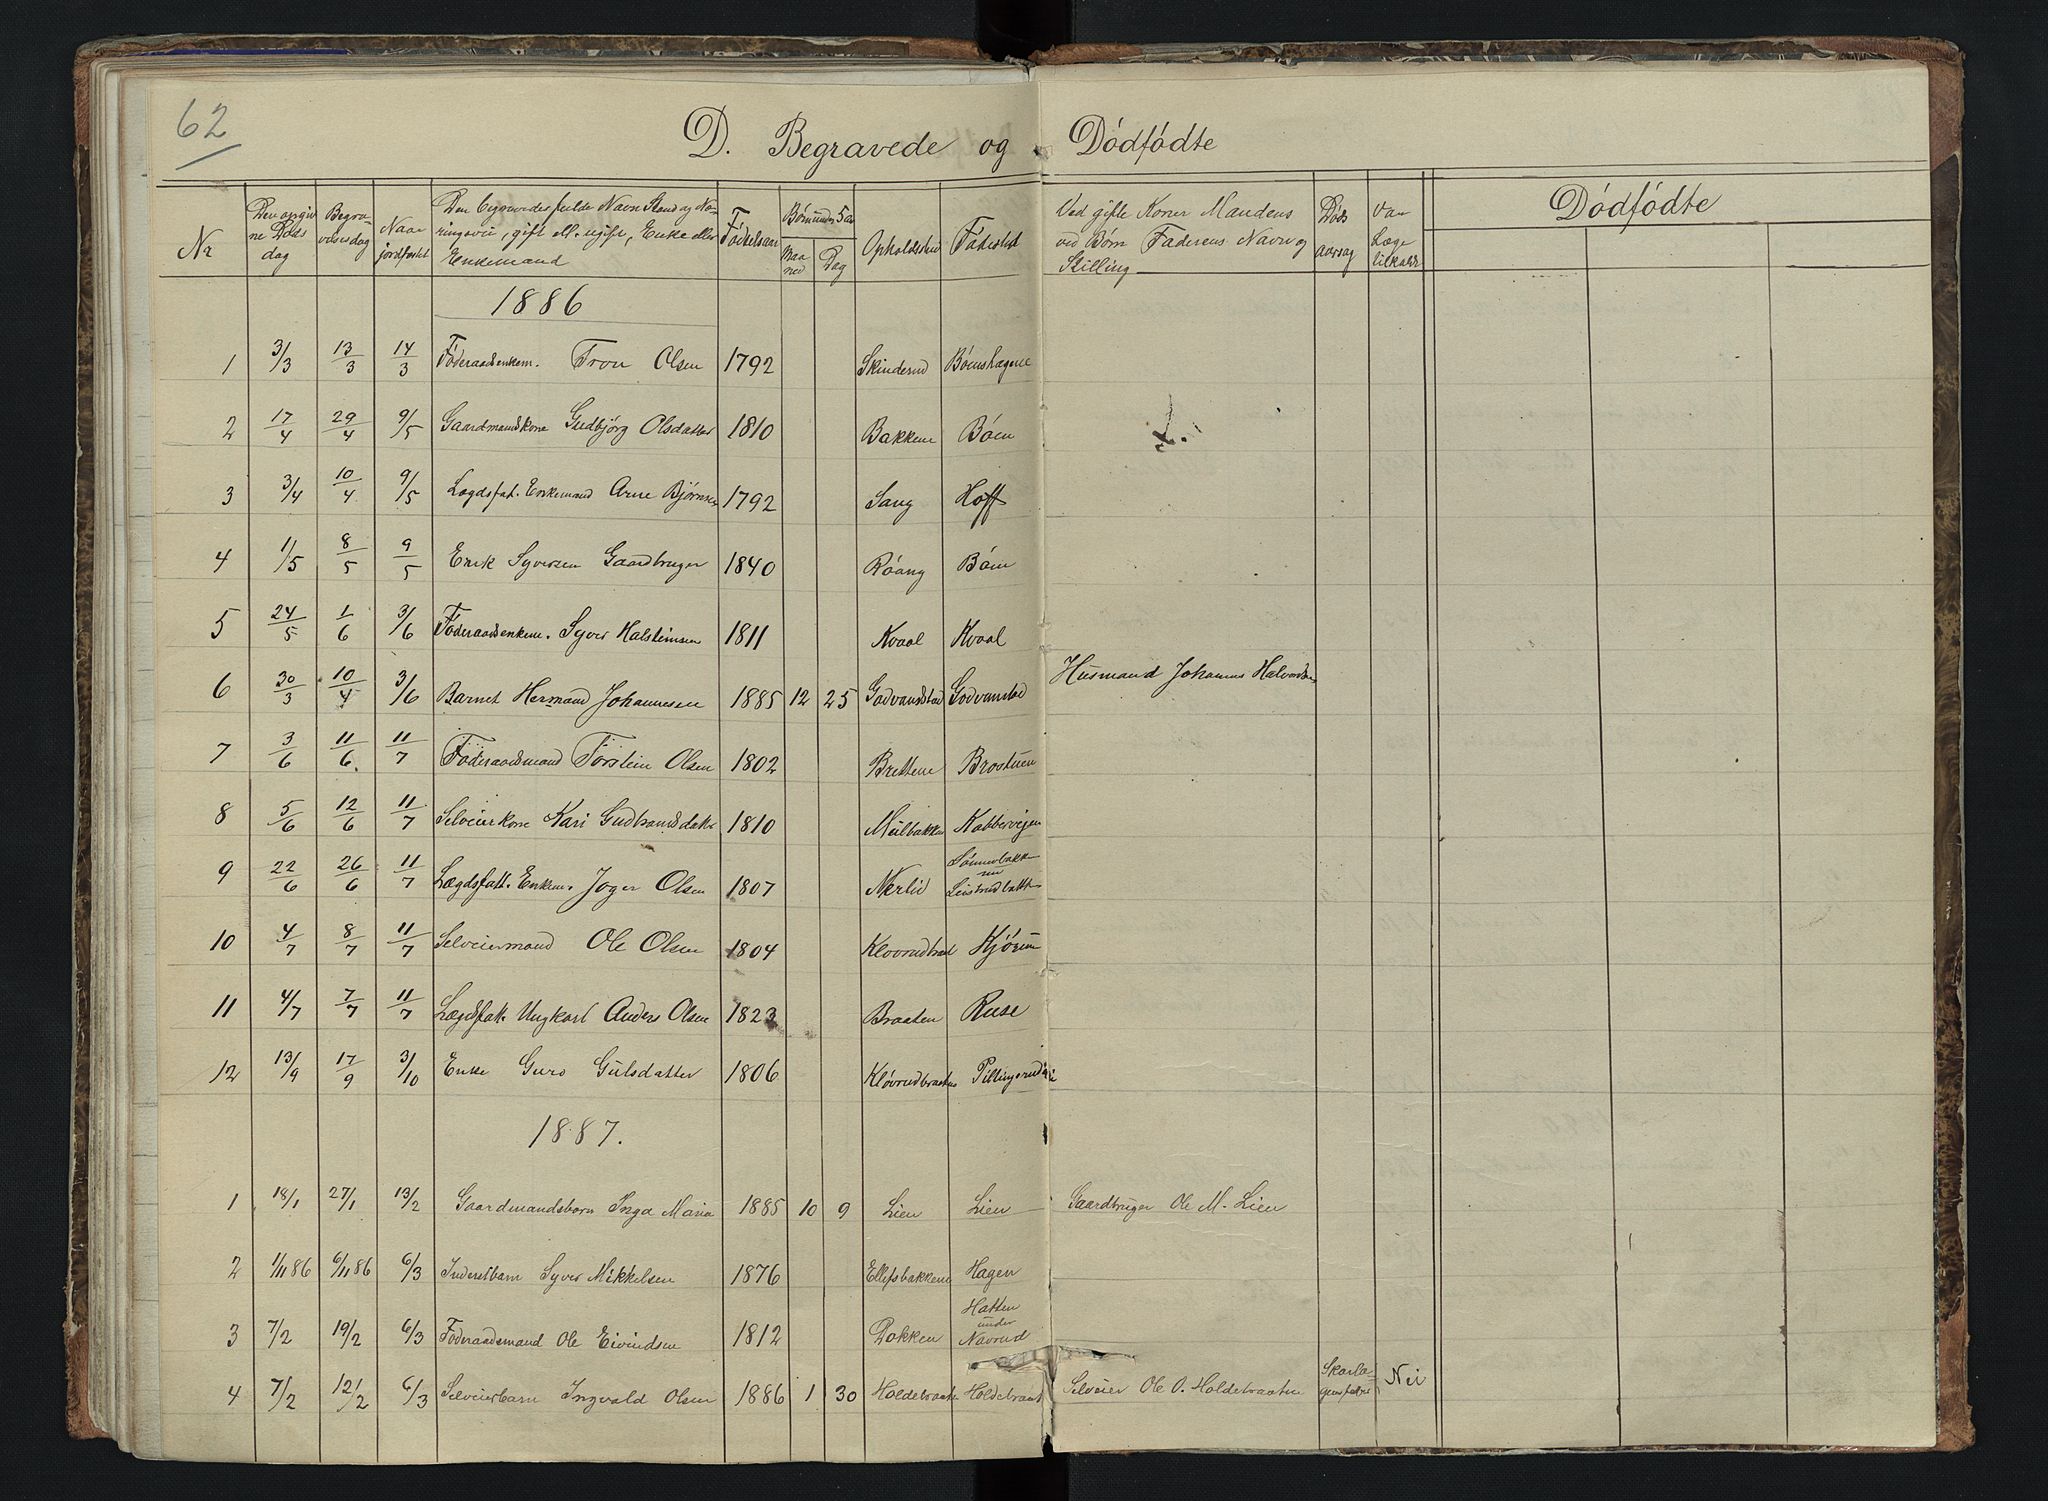 62
D. Begravede og Dödfödte
Nr
Den angivne Döds dag
Begravelsesdag
Naar jordfæstet
Den begravedes fulde Navn Stand og Næringsvei, gift ell. ugift, Enke eller Enkemand
Födselsaar
Börn under 5 aar
Maaned
Dag
Opholdssted
Födested
Ved gifte Koner Mandens ved Börn Faderens Navn og Stilling
Döds aarsag
Var Læge tilkaldt
Dödfödte
1886
1 3/3 13/3 14/3 Föderaadsenkem. Tron Olsen 1792 Skinderud Böenshagene
2 17/4 29/4 9/5 Gaardmandskone Gudbjörg Olsdatter 1810 Bakkene Böen
3 3/4 10/4 9/5 Lægdsfat. Enkemand Arne Björnsen 1792 Sang Hoff
4 1/5 8/5 9/5 Erik Syversen Gaardbruger 1840 Röang Böen
5 24/5 1/6 3/6 Föderaadsenkem. Syver Halsteinsen 1811 Kvaal Kvaal
6 30/3 10/4 3/6 Barnet Hermand Johannesen 1885 12 25 Godvandstad Godvanstad Husmand Johannes Halvordsen
7 3/6 11/6 11/7 Föderaadsmand Törstein Olsen 1802 Brettene Brostuen
8 5/6 12/6 11/7 Selveierkone Kari Gudbrandsdater 1810 Mülbakken Kabbervejen
9 22/6 26/6 11/7 Lægdsfatt. Enkem. Joger Olsen 1807 Nerlid Sönnerbakken
10 4/7 8/7 11/7 Selveiermand Ole Olsen 1804 Klovrudbraat
11 4/7 7/7 11/7 Lægdsfat. Ungkarl Anders Olsen 1823 Braaten Ruse
12 13/9 17/9 3/10 Enke Guro Gulsdatter 1806 Klövrudbraaten Pillingsrud
1887.
1 18/1 27/1 13/2 Gaardmandsbarn Inga Maria 1885 10 9 Lien Lien Gaardbruger Ole M. Lien
2 1/11 86 6/11 86 6/3 Inderstbarn Syver Mikkelsen 1876 Ellefsbakkene Hagen
3 7/2 19/2 6/3 Föderaadsmand Ole Eivindsen 1812 Dokken Hatten under Navrud
4 7/2 12/2 6/3 Selveierbarn Ingvald Olsen 1886 1 30 Holdebraaten Holdebraat Selveier Ole O. Holdebraaten Skarlagensfeber Nei